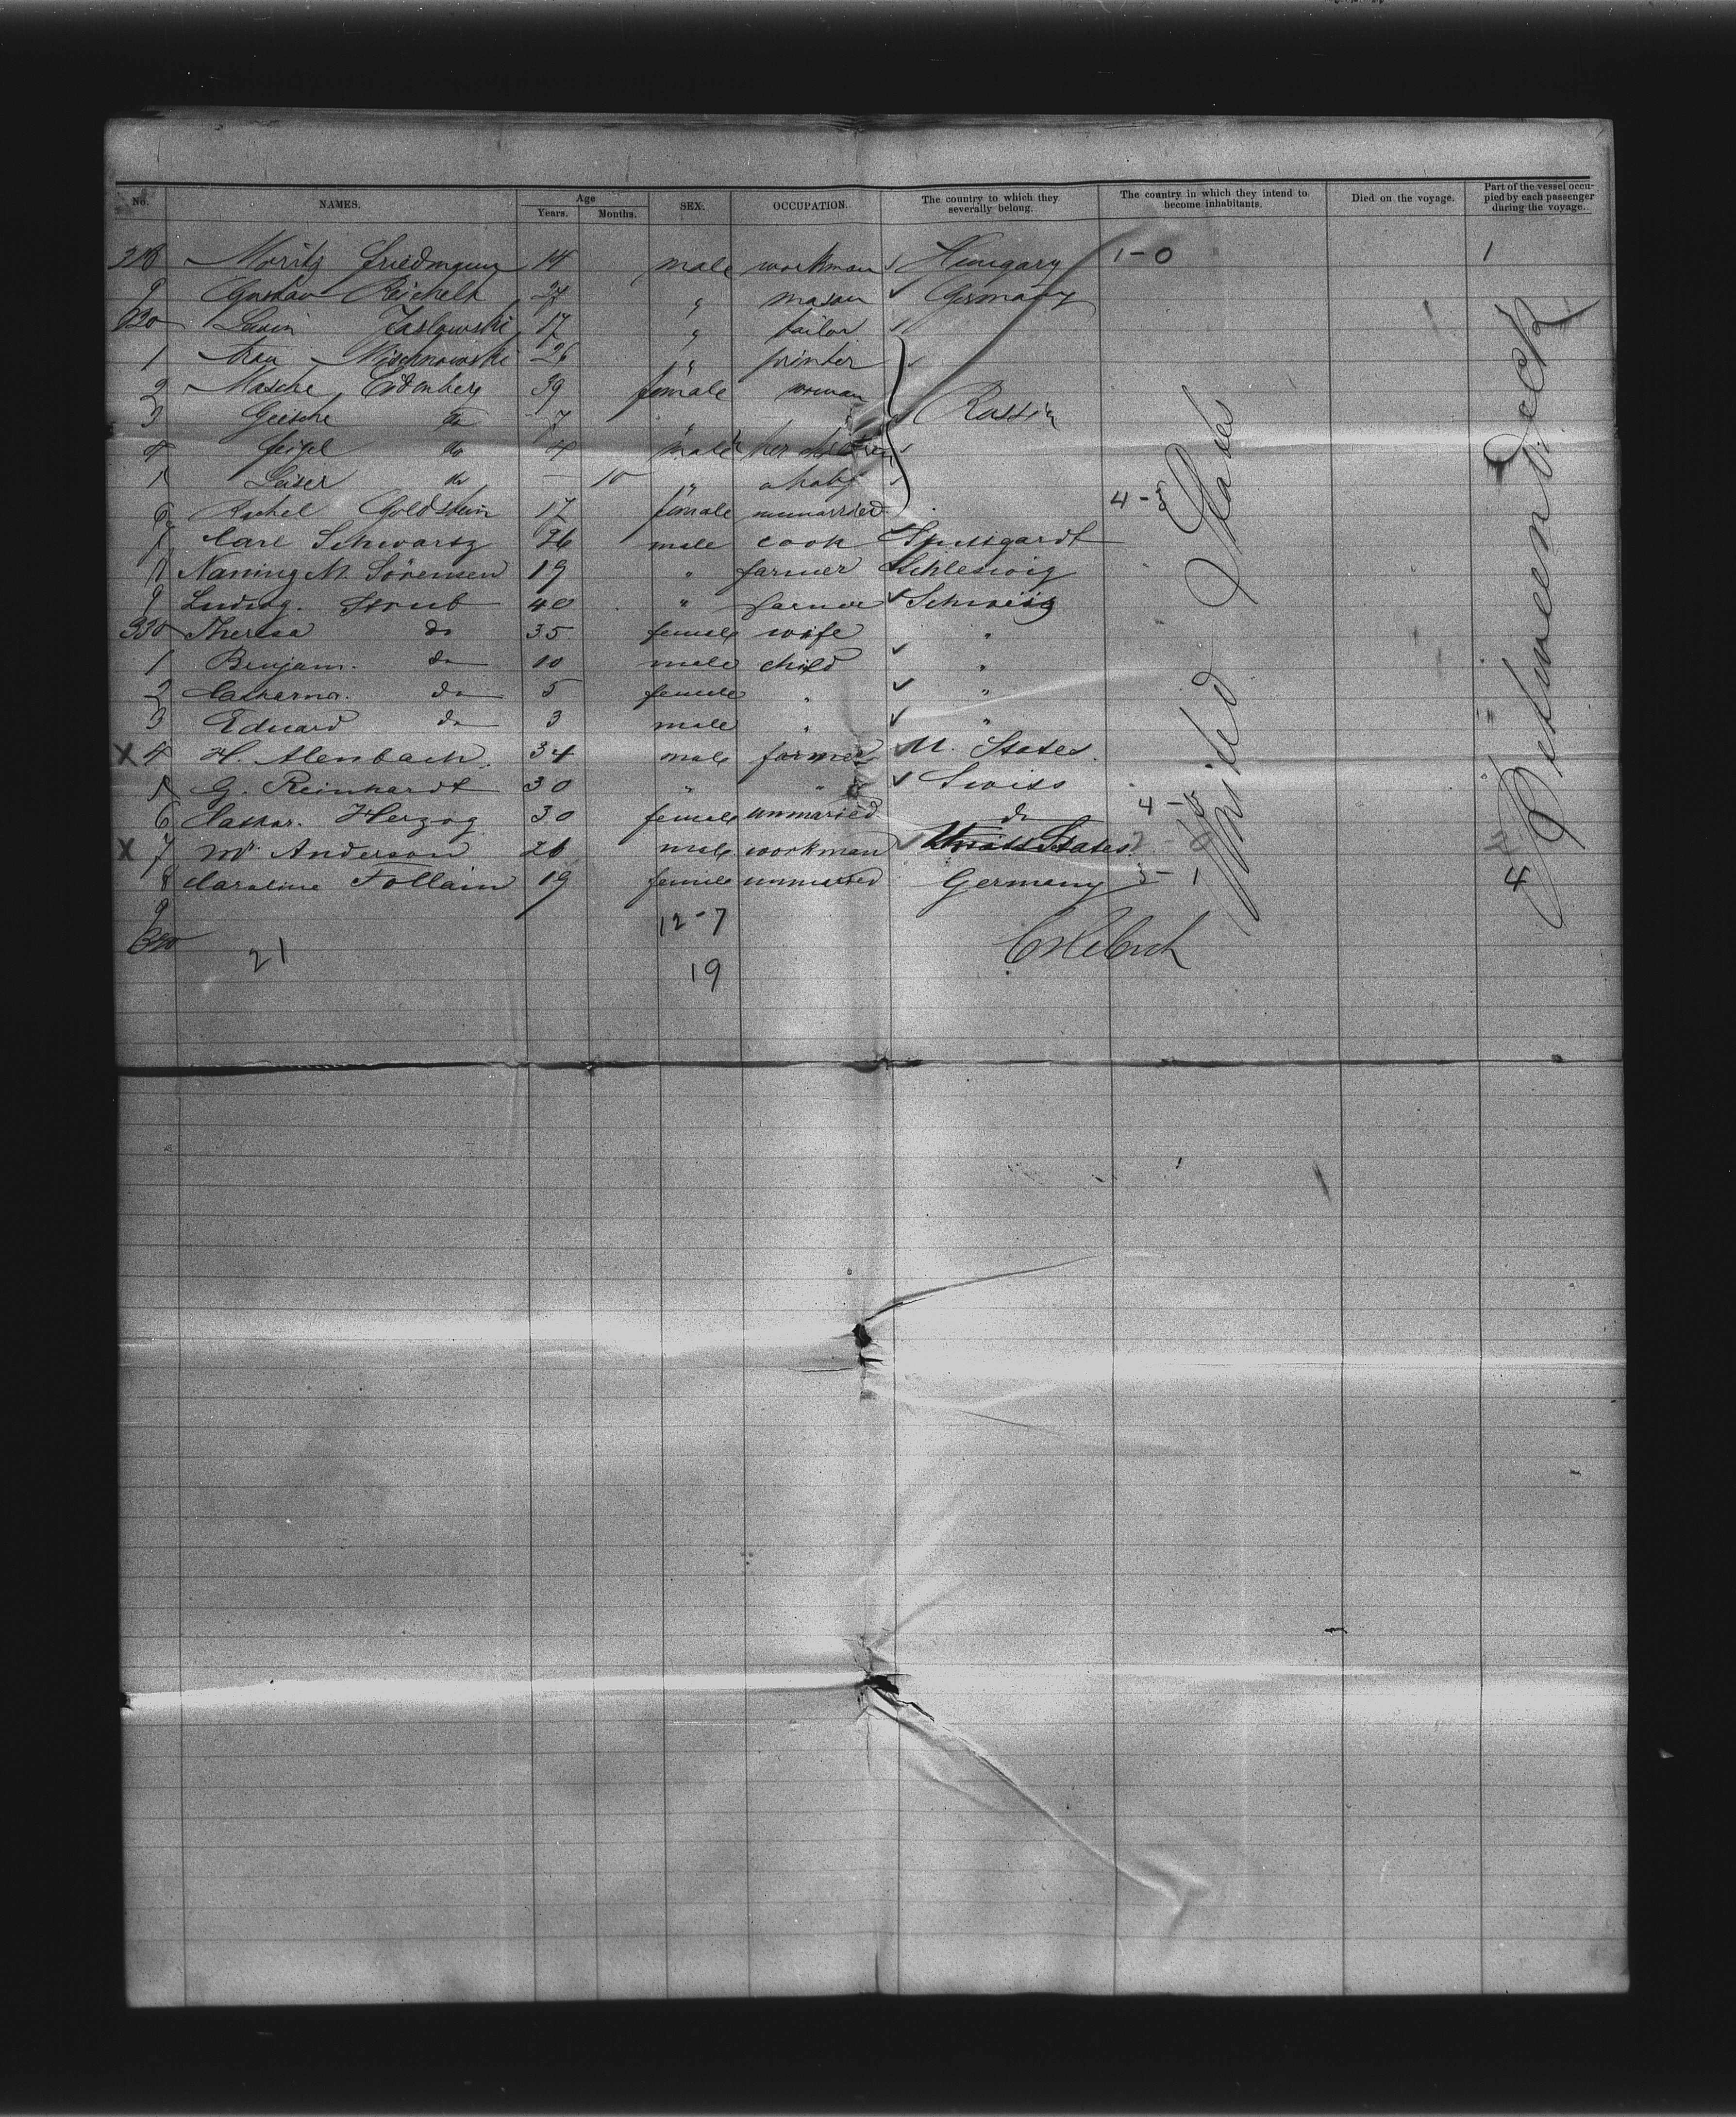 No. NAMES. Age Years. Months. SEX. OCCUPATION. The country to which they severally belong. The country in which they intend to become inhabitants. Died on the voyage. Part of the vessel occupied by each passenger during the voyage.
Moritz Friedmann 14 male workman Hungary 1-0 1
9 Gustav Reichelt 27 " mason Germany
Jaslowski 17 " tailor
1 Wischnowski 26 " printer
2 Masche Eidenberg 39 female woman
3 Geische do 7 Russia
4 Feigel do 4 male her children
5 Leiser do — 10 " a baby
6 Rachel Goldstein 17 female unmarried 4-5
7 Carl Schwartz 26 male cook Stuttgardt
8 Naming M. Sörensen 19 " farmer Schleswig
9 Ludwig. Strub 40 " farmer Schweiz
330 Theresa do 35 female wife "
1 Benjam. do 10 male child "
2 Catharina. do 5 female " "
3 Eduard do 3 male " "
X 4 H. Alenbach. 34 male farmer U. States.
5 G. Reinhardt 30 " " Swiss
6 Herzog 30 female unmarried do
X 7 Mr Anderson 26 male workman United States 2
8 Caroline Follain 19 female unmarried Germany 3-1 4
9
12-7
21
19
United States
Between Deck